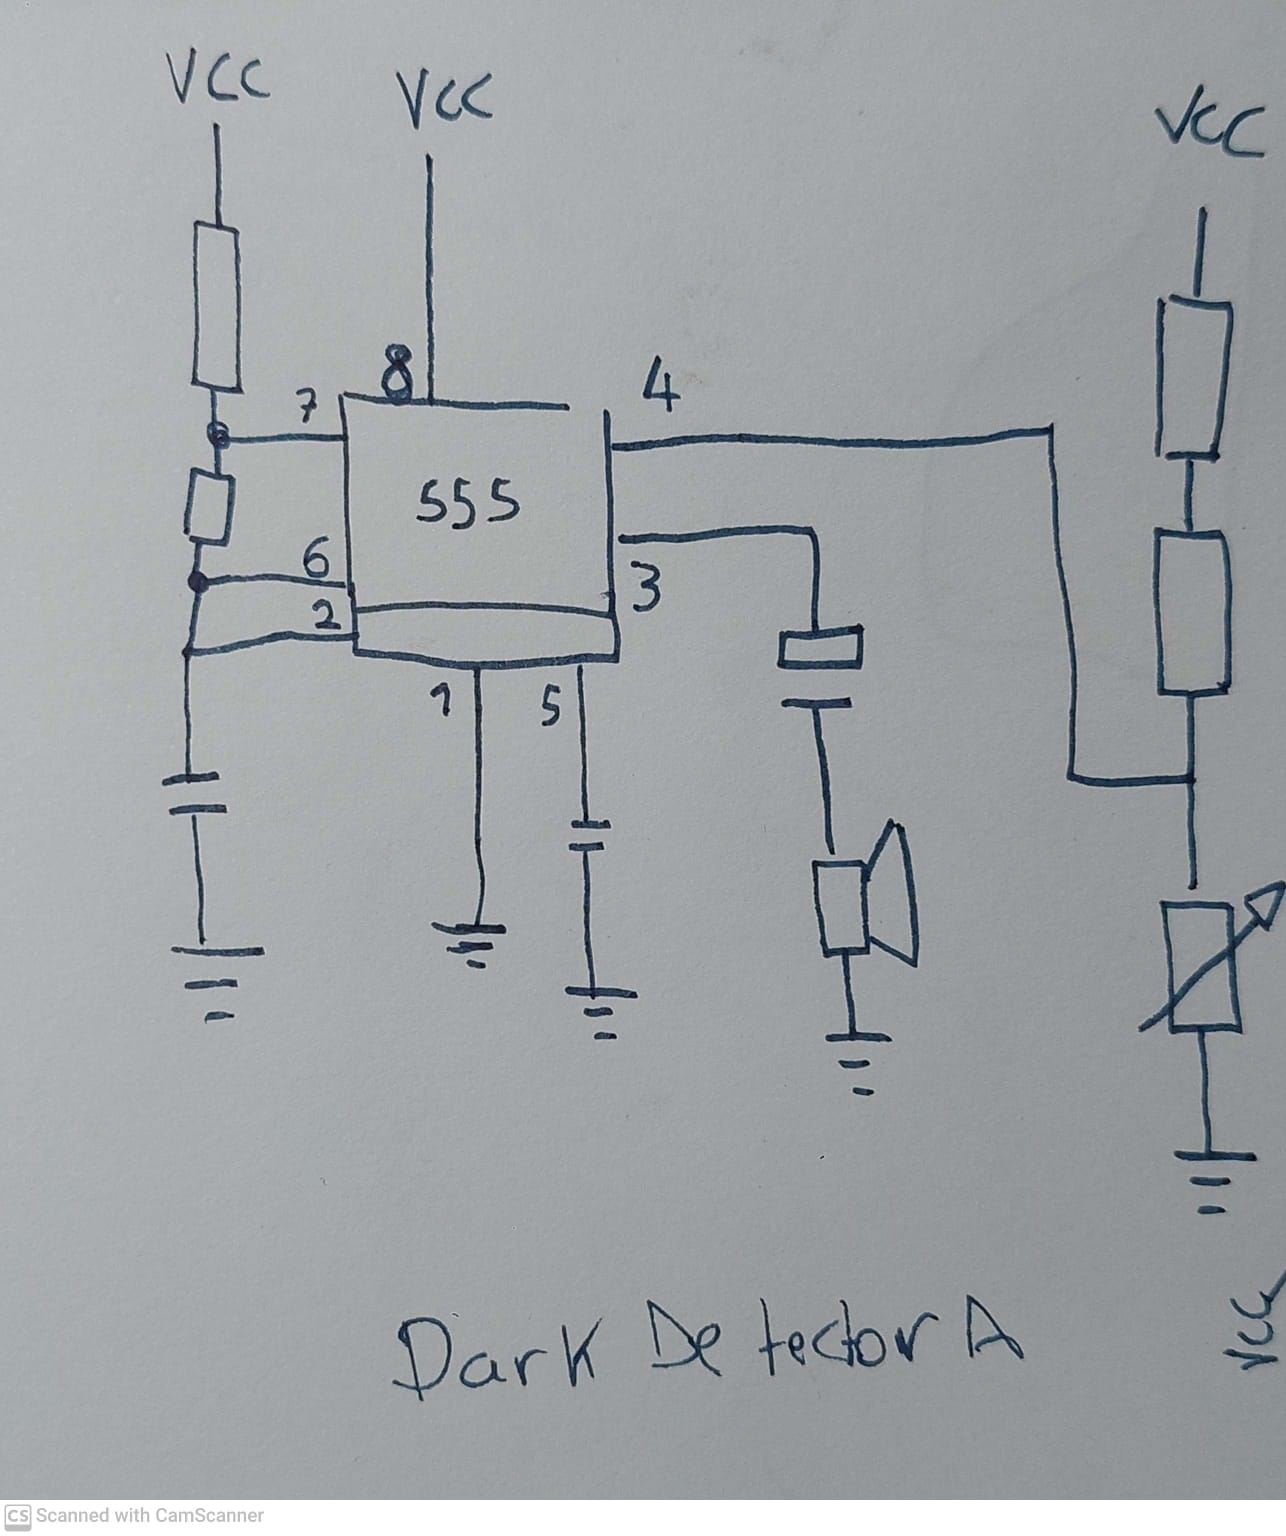 VCC
VCC
VCC
8
4
7
555
6
3
2
1
5
Dark Detector A
VCC
CS Scanned with CamScanner